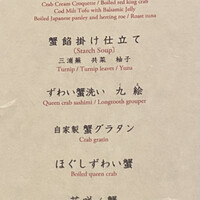 Crab Cream Croquette / Boiled red king crab
Cod Milt Tofu with Balsamic Jelly
Boiled Japanese parsley and herring roe / Roast tuna
蟹餡掛け仕立て
(Starch Soup)
三浦蕪 共菜 柚子
Turnip / Turnip leaves / Yuzu
ずわい蟹洗い 九絵
Queen crab sashimi / Longtooth grouper
自家製 蟹グラタン
Crab gratin
ほぐしずわい蟹
Boiled queen crab